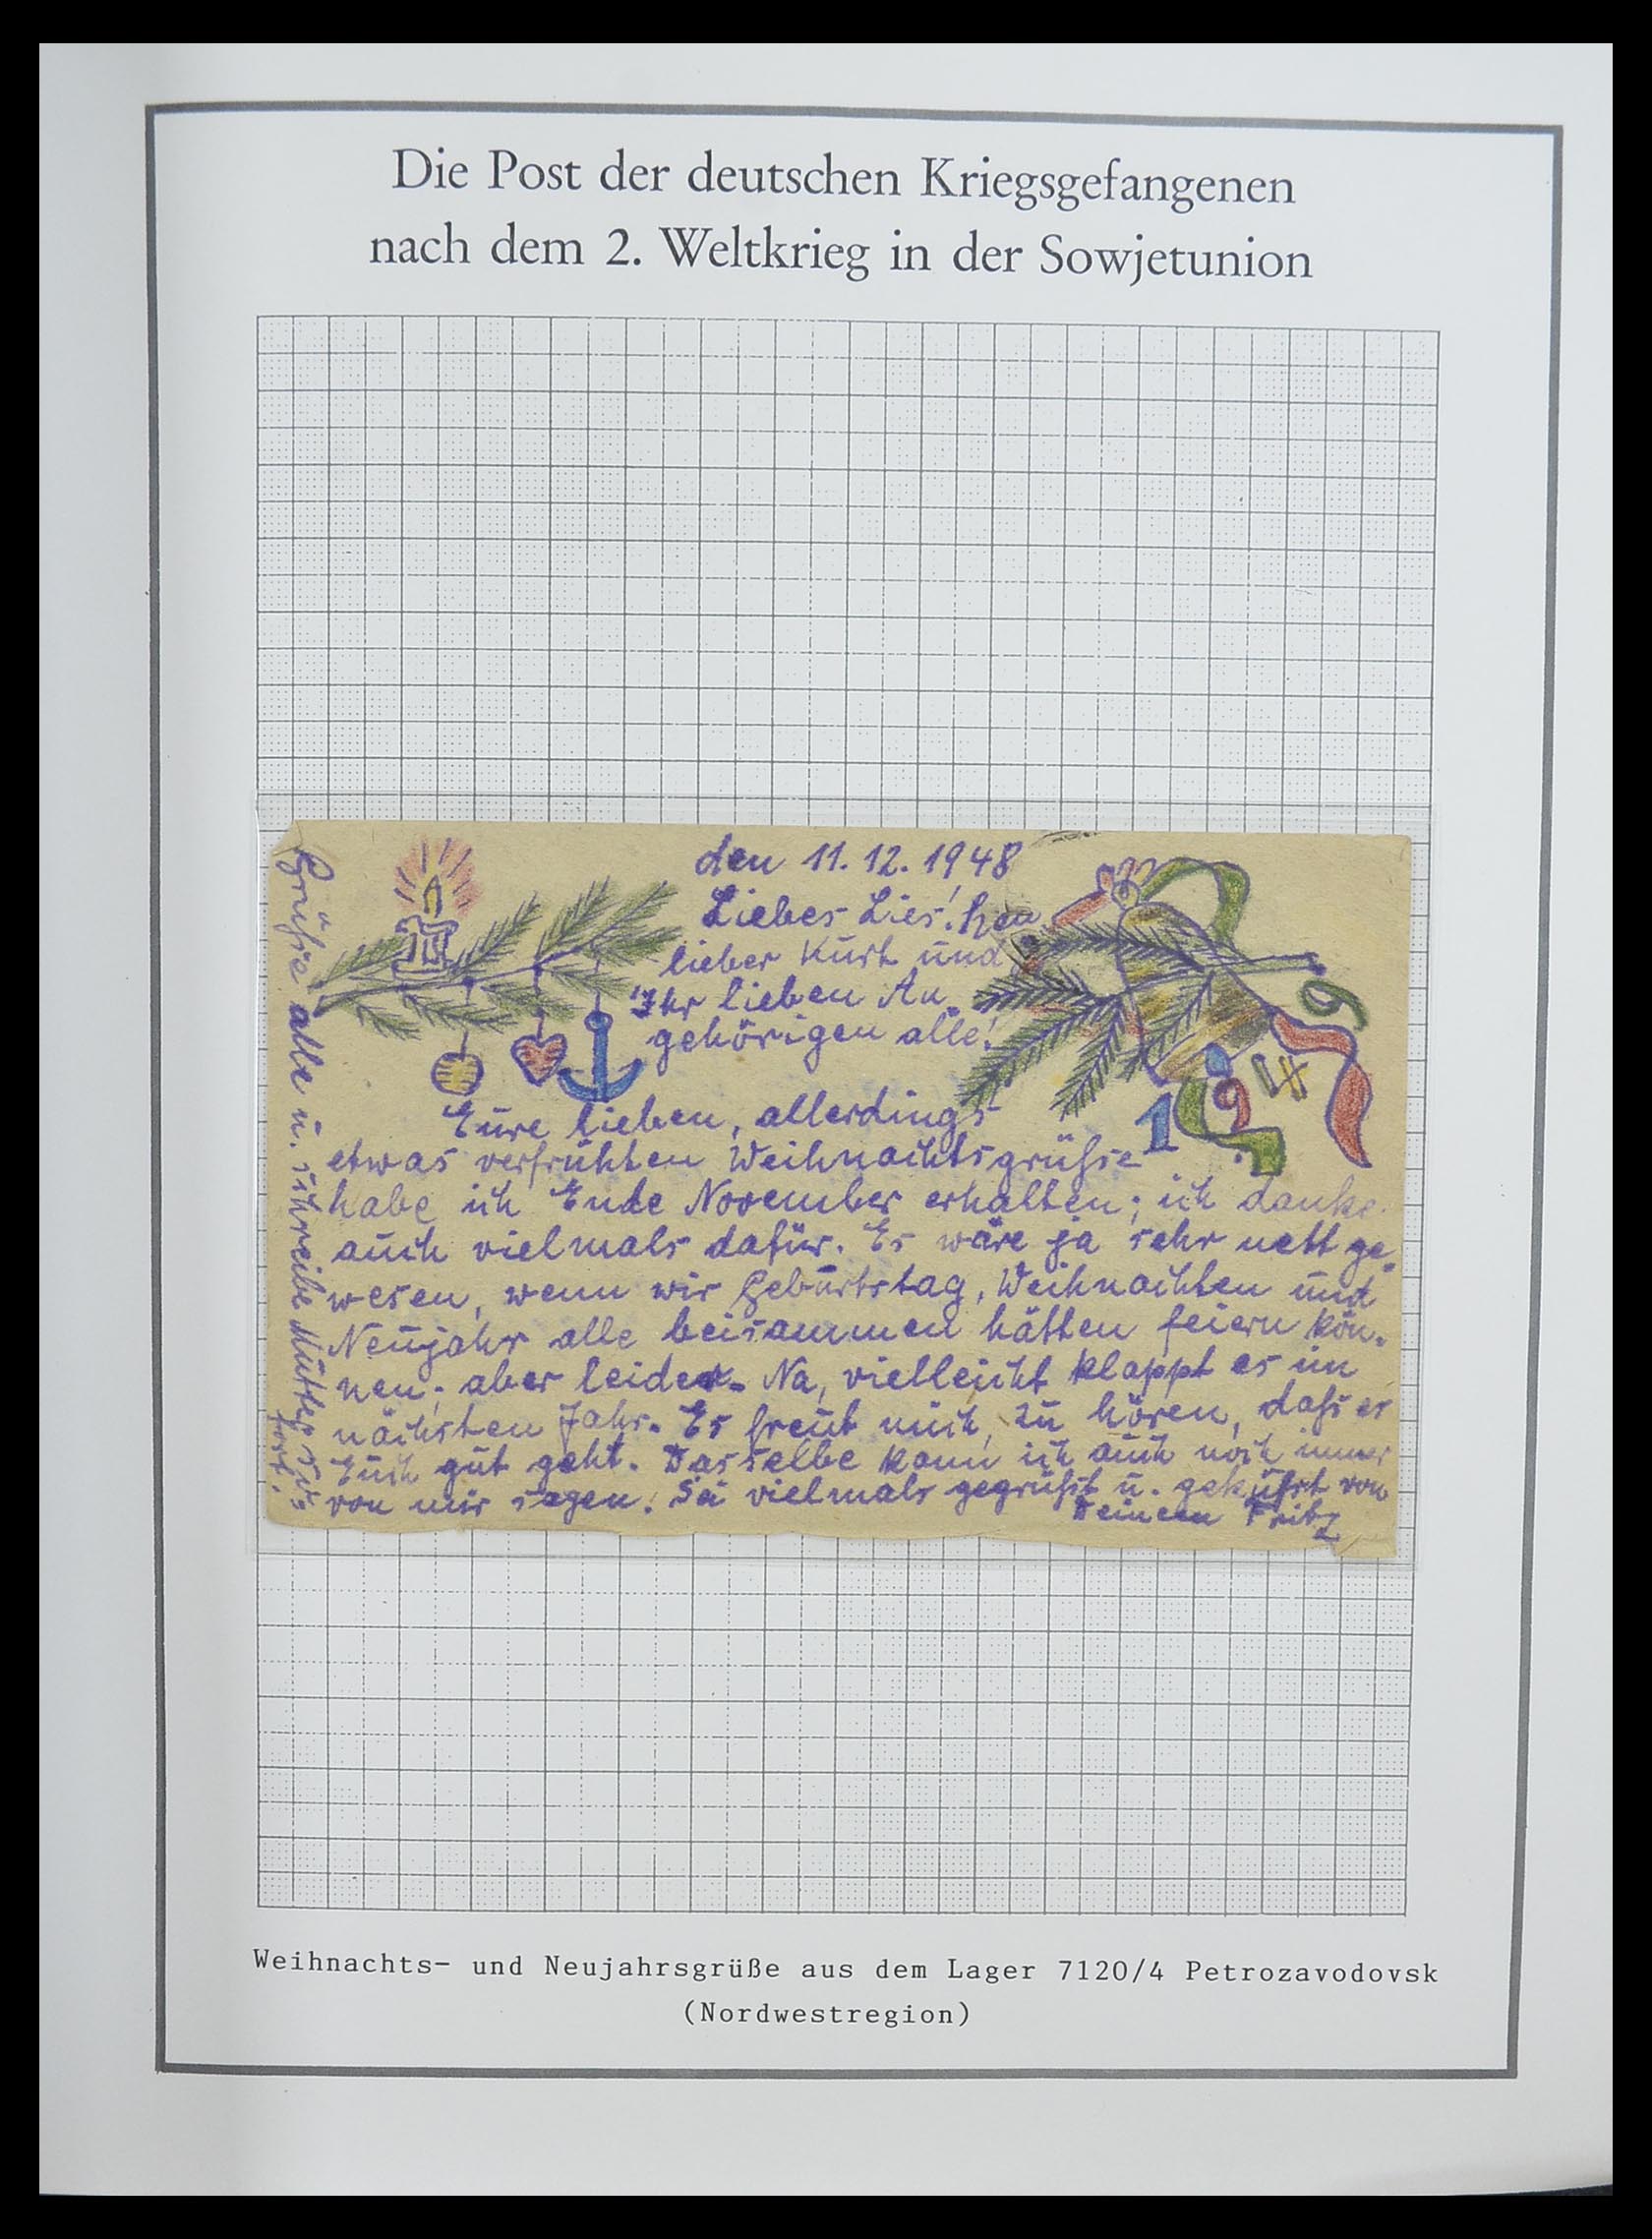 Die Post der deutschen Kriegsgefangenen
nach dem 2. Weltkrieg in der Sowjetunion
den 11.12.1948
Liebes Lies!chen
lieber Kurt und
Ihr lieben An-
gehörigen alle!
1949
Eure lieben, allerdings
etwas verfrühten Weihnachtsgrüße
habe ich Ende November erhalten; ich danke
auch vielmals dafür. Es wäre ja sehr nett ge-
wesen, wenn wir Geburtstag, Weihnachten und
Neujahr alle beisammen hätten feiern kön-
nen; aber leider. Na, vielleicht klappt es im
nächsten Jahr. Es freut mich, zu hören, daß es
Euch gut geht. Dasselbe kann ich auch noch immer
von mir sagen. Sei vielmals gegrüßt u. geküßt von
Deinem Fritz
Grüße alle u. schreibe Mutter
Weihnachts- und Neujahrsgrüße aus dem Lager 7120/4 Petrozavodovsk
(Nordwestregion)